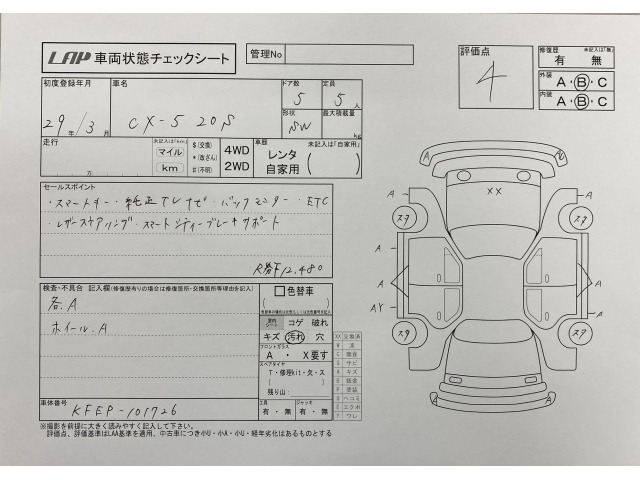 LAP 車両状態チェックシート
管理No
評価点
4
修復歴 未記入は「無」
有 無
外装 A・B・C
内装 A・B・C
初度登録年月
29年 3月
車名
CX-5 20S
ドア数
5
定員
5人
形状
SW
最大積載量
kg
走行
万
未記入は「km」
マイル
km
$(交換)
*(改ざん)
#(不明)
4WD
2WD
車歴 未記入は「自家用」
レンタ
自家用
セールスポイント
・スマートキー・純正TVナビ・バックモニター・ETC
・レザーステアリング・スマートシティーブレーキサポート
R券¥12,480
検査・不具合 記入欄(修復歴有りの場合は修復箇所・交換箇所等理由を記入)
各.A
ホイール.A
色替車
室内シート
コゲ 破れ
キズ 汚れ 穴
フロントガラス
A ・ X要す
スペアタイヤ
T・修理kit・欠・ス
残り山:
工具 有・無
ジャッキ 有・無
XX 交換済
W 波
C 腐食
S サビ
A キズ
B 鈑金
P 塗装
U ヘコミ
E エクボ
Y ワレ
車体番号
KFEP-101726
※撮影を前提に大きく読みやすく記入して下さい。
評価点、評価基準はLAA基準を適用。中古車につき小U・小A・小U・経年劣化はあるものとする
A
XX
A
A
スタ
スタ
A
A
A
A
AY
A
スタ
スタ
A
A